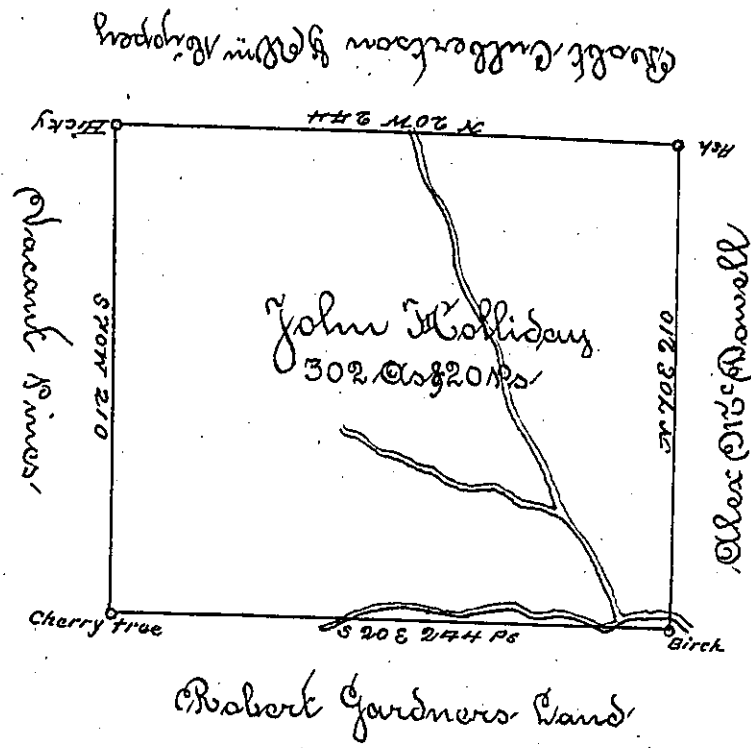 Robt. Culbertson & Wm
Hicky
N 20 W 244
Ash
Vacant Pines
S 70 W 210
John Holliday
302 As & 20 Ps
N 70 E 210
Alex McDowell
Cherry tree
S 20 E 244 Ps
Birch
Robert Gardners Land